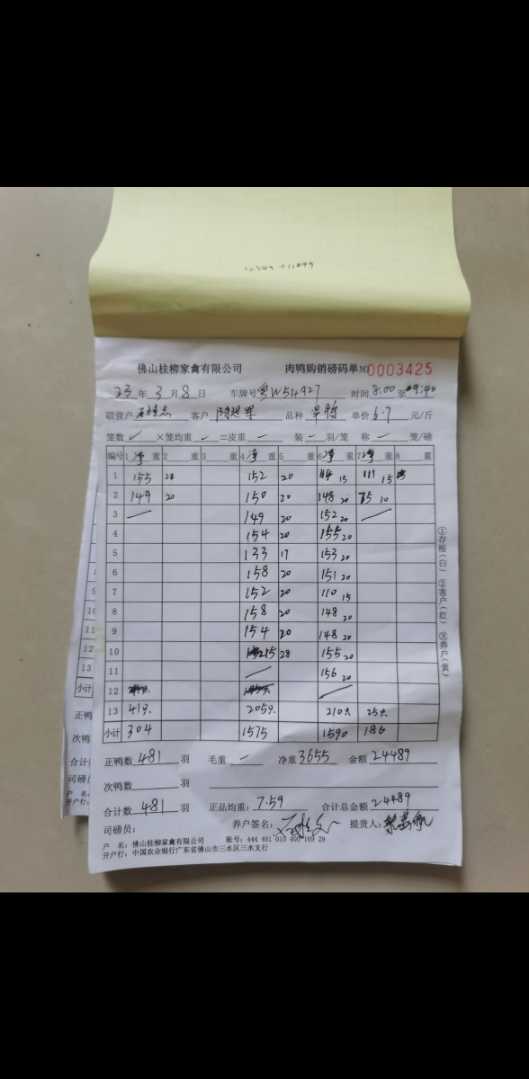 佛山桂柳家禽有限公司 肉鸭购销磅码单 №0003425
23年3月8日 车牌号粤W54927 时间8:00至9:40
客户 品种 单价6.7元/斤
笼数 × 笼均重 = 皮重 装 羽/笼 称 笼/磅
编号 1净 重 2 重 3 重 4净 重 5 重 6净 重 7净 重 8 重
1 155 28 152 20 15 111 15
2 149 20 150 20 148 20 75 10
3 149 20 152 20
4 154 20 155 20
5 133 17 153 20
6 158 20 151 20
7 152 20 110 15
8 158 20 148 20
9 154 20 148 20
10 215 28 155 20
11 156 20
12
13 419. 2059. 210只 25只
小计 304 1575 1590 186
正鸭数 481 羽 毛重 净重 3655 金额 24489
次鸭数 羽
合计数 481 羽 正品均重: 7.59 合计总金额 24489
司磅员: 养户签名: 提货人:
户 名: 佛山桂柳家禽有限公司
开户行: 中国农业银行广东省佛山市三水区三水支行
①存根(白) ②客户(红) ③养户(黄)
10
11
12
13
小计
正鸭
次鸭
合计
司磅